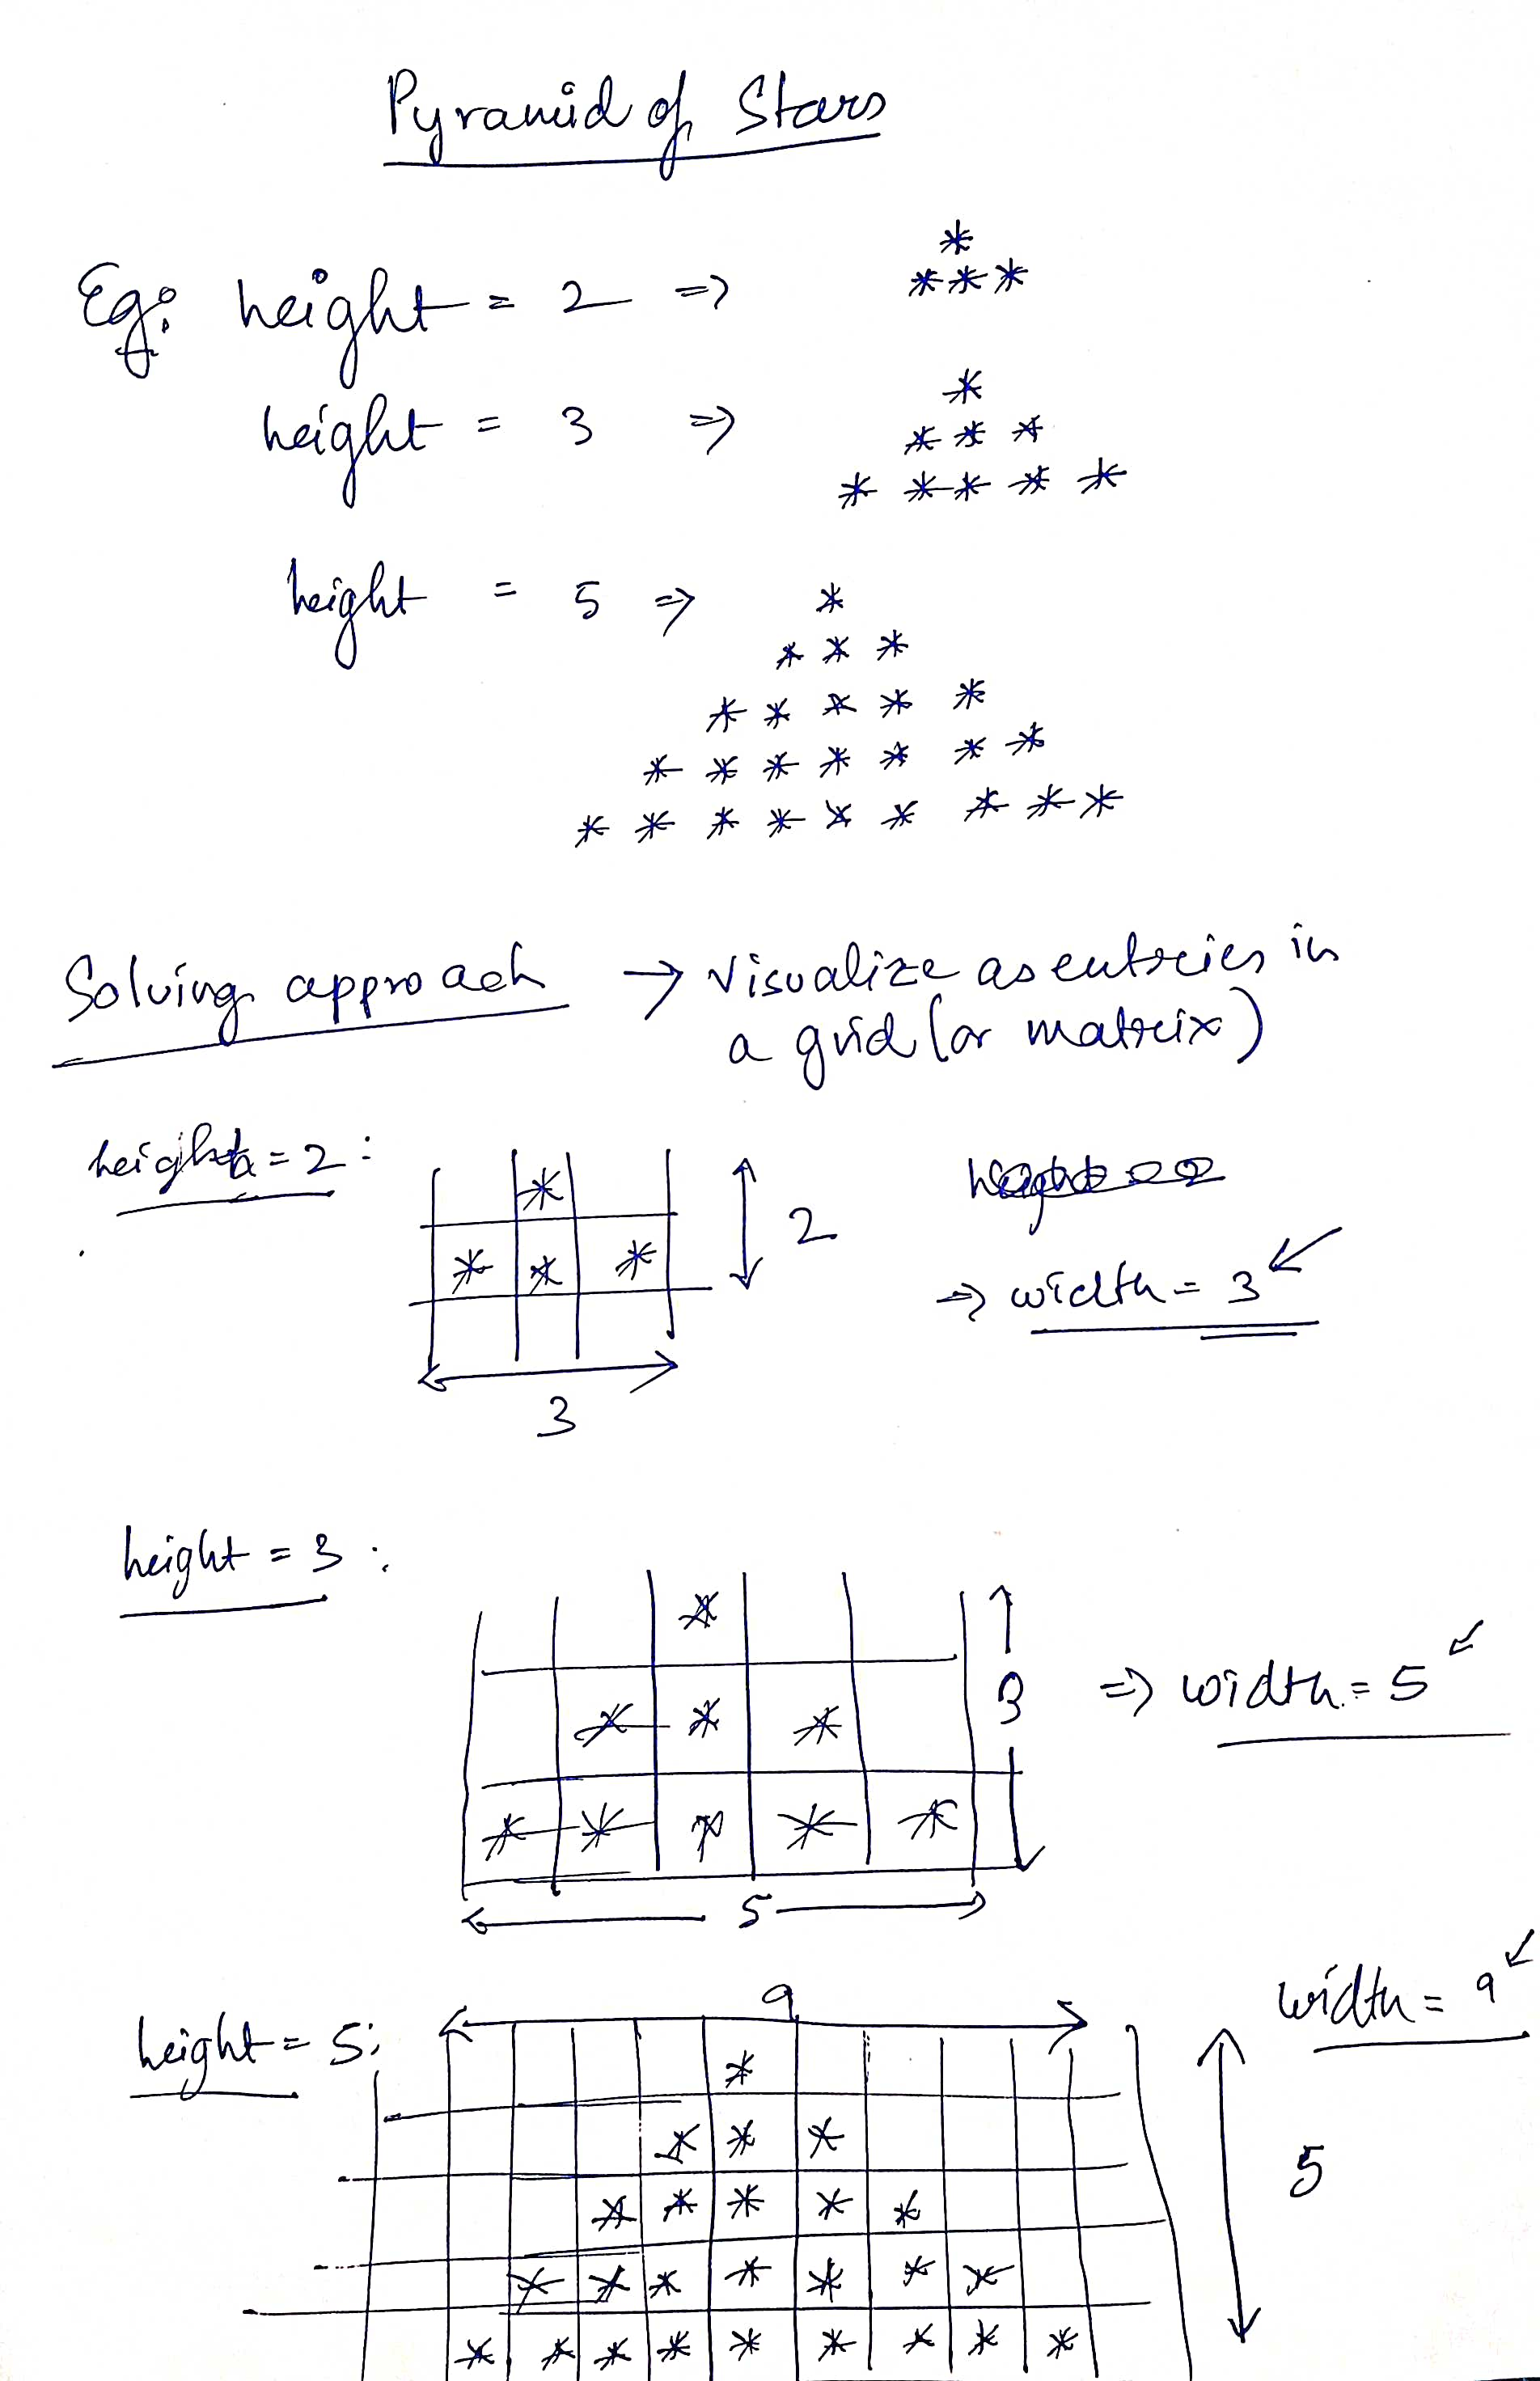 Pyramid of Stars
Eg: height = 2 =>
*
***
height = 3 =>
*
* * *
* * * * *
height = 5 =>
*
* * *
* * * * *
* * * * * * *
* * * * * * * * *
Solving approach → visualize as entries in
a grid (or matrix)
height = 2 :
*
* * *
2
3
=> width = 3
height = 3 :
*
* * *
* * * * *
3
5
=> width = 5
height = 5:
9
width = 9
*
* * *
* * * * *
* * * * * * *
* * * * * * * * *
5